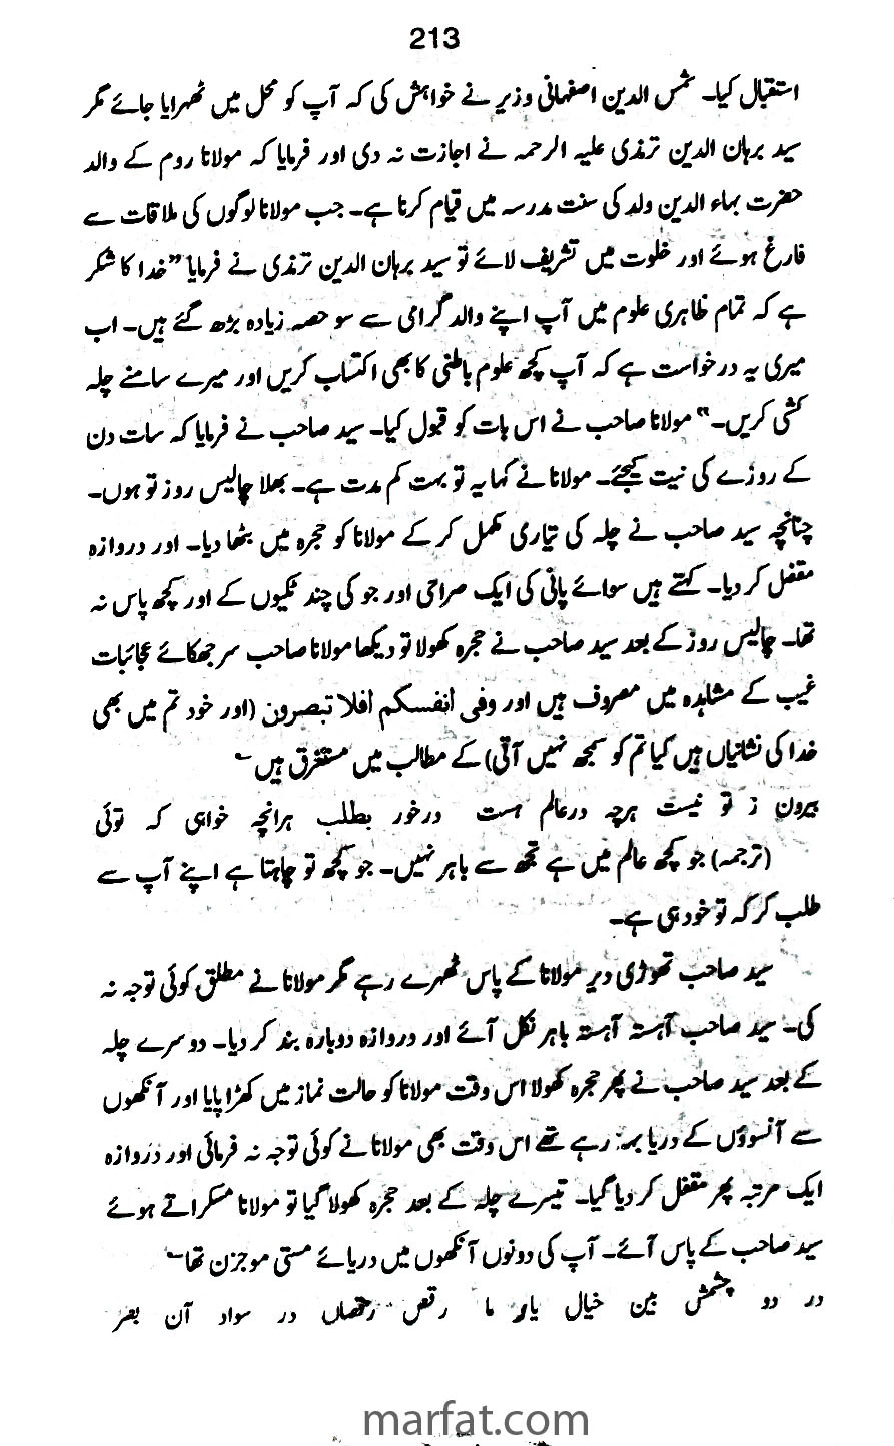 213
استقبال کیا۔ شمس الدین اصفہانی وزیر نے خواہش کی کہ آپ کو محل میں ٹھہرایا جائے مگر
سید برہان الدین ترمذی علیہ الرحمہ نے اجازت نہ دی اور فرمایا کہ مولانا روم کے والد
حضرت بہاء الدین ولد کی سنت مدرسہ میں قیام کرنا ہے۔ جب مولانا لوگوں کی ملاقات سے
فارغ ہوئے اور خلوت میں تشریف لائے تو سید برہان الدین ترمذی نے فرمایا ”خدا کا شکر
ہے کہ تمام ظاہری علوم میں آپ اپنے والد گرامی سے سو حصہ زیادہ بڑھ گئے ہیں۔ اب
میری یہ درخواست ہے کہ آپ کچھ علوم باطنی کا بھی اکتساب کریں اور میرے سامنے چلہ
کشی کریں۔“ مولانا صاحب نے اس بات کو قبول کیا۔ سید صاحب نے فرمایا کہ سات دن
کے روزے کی نیت کیجئے۔ مولانا نے کہا یہ تو بہت کم مدت ہے۔ بھلا چالیس روز تو ہوں۔
چنانچہ سید صاحب نے چلہ کی تیاری مکمل کر کے مولانا کو حجرہ میں بٹھا دیا۔ اور دروازہ
مقفل کر دیا۔ کہتے ہیں سوائے پانی کی ایک صراحی اور جو کی چند ٹکیوں کے اور کچھ پاس نہ
تھا۔ چالیس روز کے بعد سید صاحب نے حجرہ کھولا تو دیکھا مولانا صاحب سر جھکائے عجائبات
غیب کے مشاہدہ میں مصروف ہیں اور وفی انفسکم افلا تبصرون (اور خود تم میں بھی
خدا کی نشانیاں ہیں کیا تم کو سمجھ نہیں آتی) کے مطالب میں مستغرق ہیں ؎
بیرون ز تو نیست ہرچہ درعالم ہست درخور بطلب ہرانچہ خواہی کہ توئی
(ترجمہ) جو کچھ عالم میں ہے تجھ سے باہر نہیں۔ جو کچھ تو چاہتا ہے اپنے آپ سے
طلب کر کہ تو خود ہی ہے۔
سید صاحب تھوڑی دیر مولانا کے پاس ٹھہرے رہے مگر مولانا نے مطلق کوئی توجہ نہ
کی۔ سید صاحب آہستہ آہستہ باہر نکل آئے اور دروازہ دوبارہ بند کر دیا۔ دوسرے چلہ
کے بعد سید صاحب نے پھر حجرہ کھولا اس وقت مولانا کو حالت نماز میں کھڑا پایا اور آنکھوں
سے آنسوؤں کے دریا بہہ رہے تھے اس وقت بھی مولانا نے کوئی توجہ نہ فرمائی اور دروازہ
ایک مرتبہ پھر مقفل کر دیا گیا۔ تیسرے چلہ کے بعد حجرہ کھولا گیا تو مولانا مسکراتے ہوئے
سید صاحب کے پاس آئے۔ آپ کی دونوں آنکھوں میں دریائے مستی موجزن تھا ؎
در دو چشمش بین خیال یار ما رقص رقصاں در سواد آن بصر
marfat.com